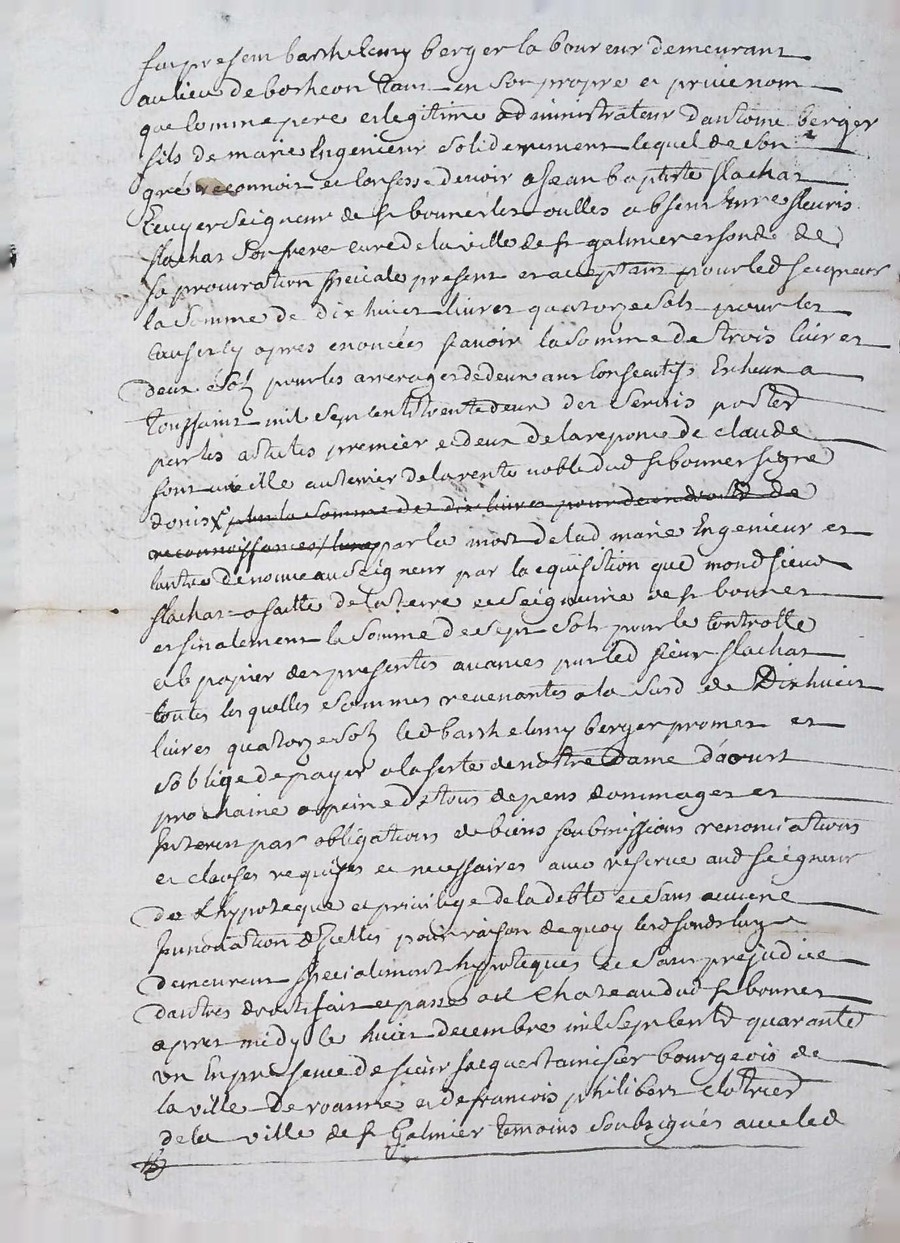 fut present barthelemy berger laboureur demeurant
au lieu de bothéon tant en son propre et privé nom
que comme pere et legitime administrateur d'antoine berger
fils de marie Ingenieur solidairement lequel de son
gré reconnoit et confesse devoir a Jean baptiste flachat
Ecuyer Seigneur de st bonnet les oulles absent messire fleuris
flachat son frere curé de la ville de st galmier et fondé de
sa procuration speciale present et acceptant pour led seigneur
la somme de dix huict livres quatorze sols pour les
causes cy apres enoncées scavoir la somme de trois livres
deux sols pour les arrerages de deux ans consecutifs Echeus a
toussaint mil sept cents trente deux des servis portés
par les articles premier et deux de la reponce de claude
au terrier de la rente noble dud st bonnet signé
donis pour la somme de dix livres pour deux droits de
reconnoissances par la mort de lad marie Ingenieur et
lautre de nouveau seigneur par la cquisition que mond sieur
flachat a faitte de la terre et seigneurie de st bonnet
et finalement la somme de sept sols pour le controlle
et papier des presentes avancés par led sieur flachat
toutes lesquelles sommes revenantes a la susd de Dix huict
livres quatorze sols led barthelemy berger promet et
s'oblige de payer a la feste de notre Dame d'aoust
prochaine a peine de tous depens dommages et
Interest par obligations de biens soubmissions renonciations
et clauses requises et necessaires avec reserve aud seigneur
de l'hypoteque et privilege de la debte et sans aucune
Innovation d'Icelles pour raison de quoy les fonds
demeurent specialement hypoteques et sans prejudice
dautres droits fait et passé au Chateau dud st bonnet
apres midy le huict decembre mil sept cents quarante
un En presence de sieur Jacques tamisier bourgeois de
la ville de roanne et de francois philibert clotrier
de la ville de st Galmier temoins soubsignés avec led